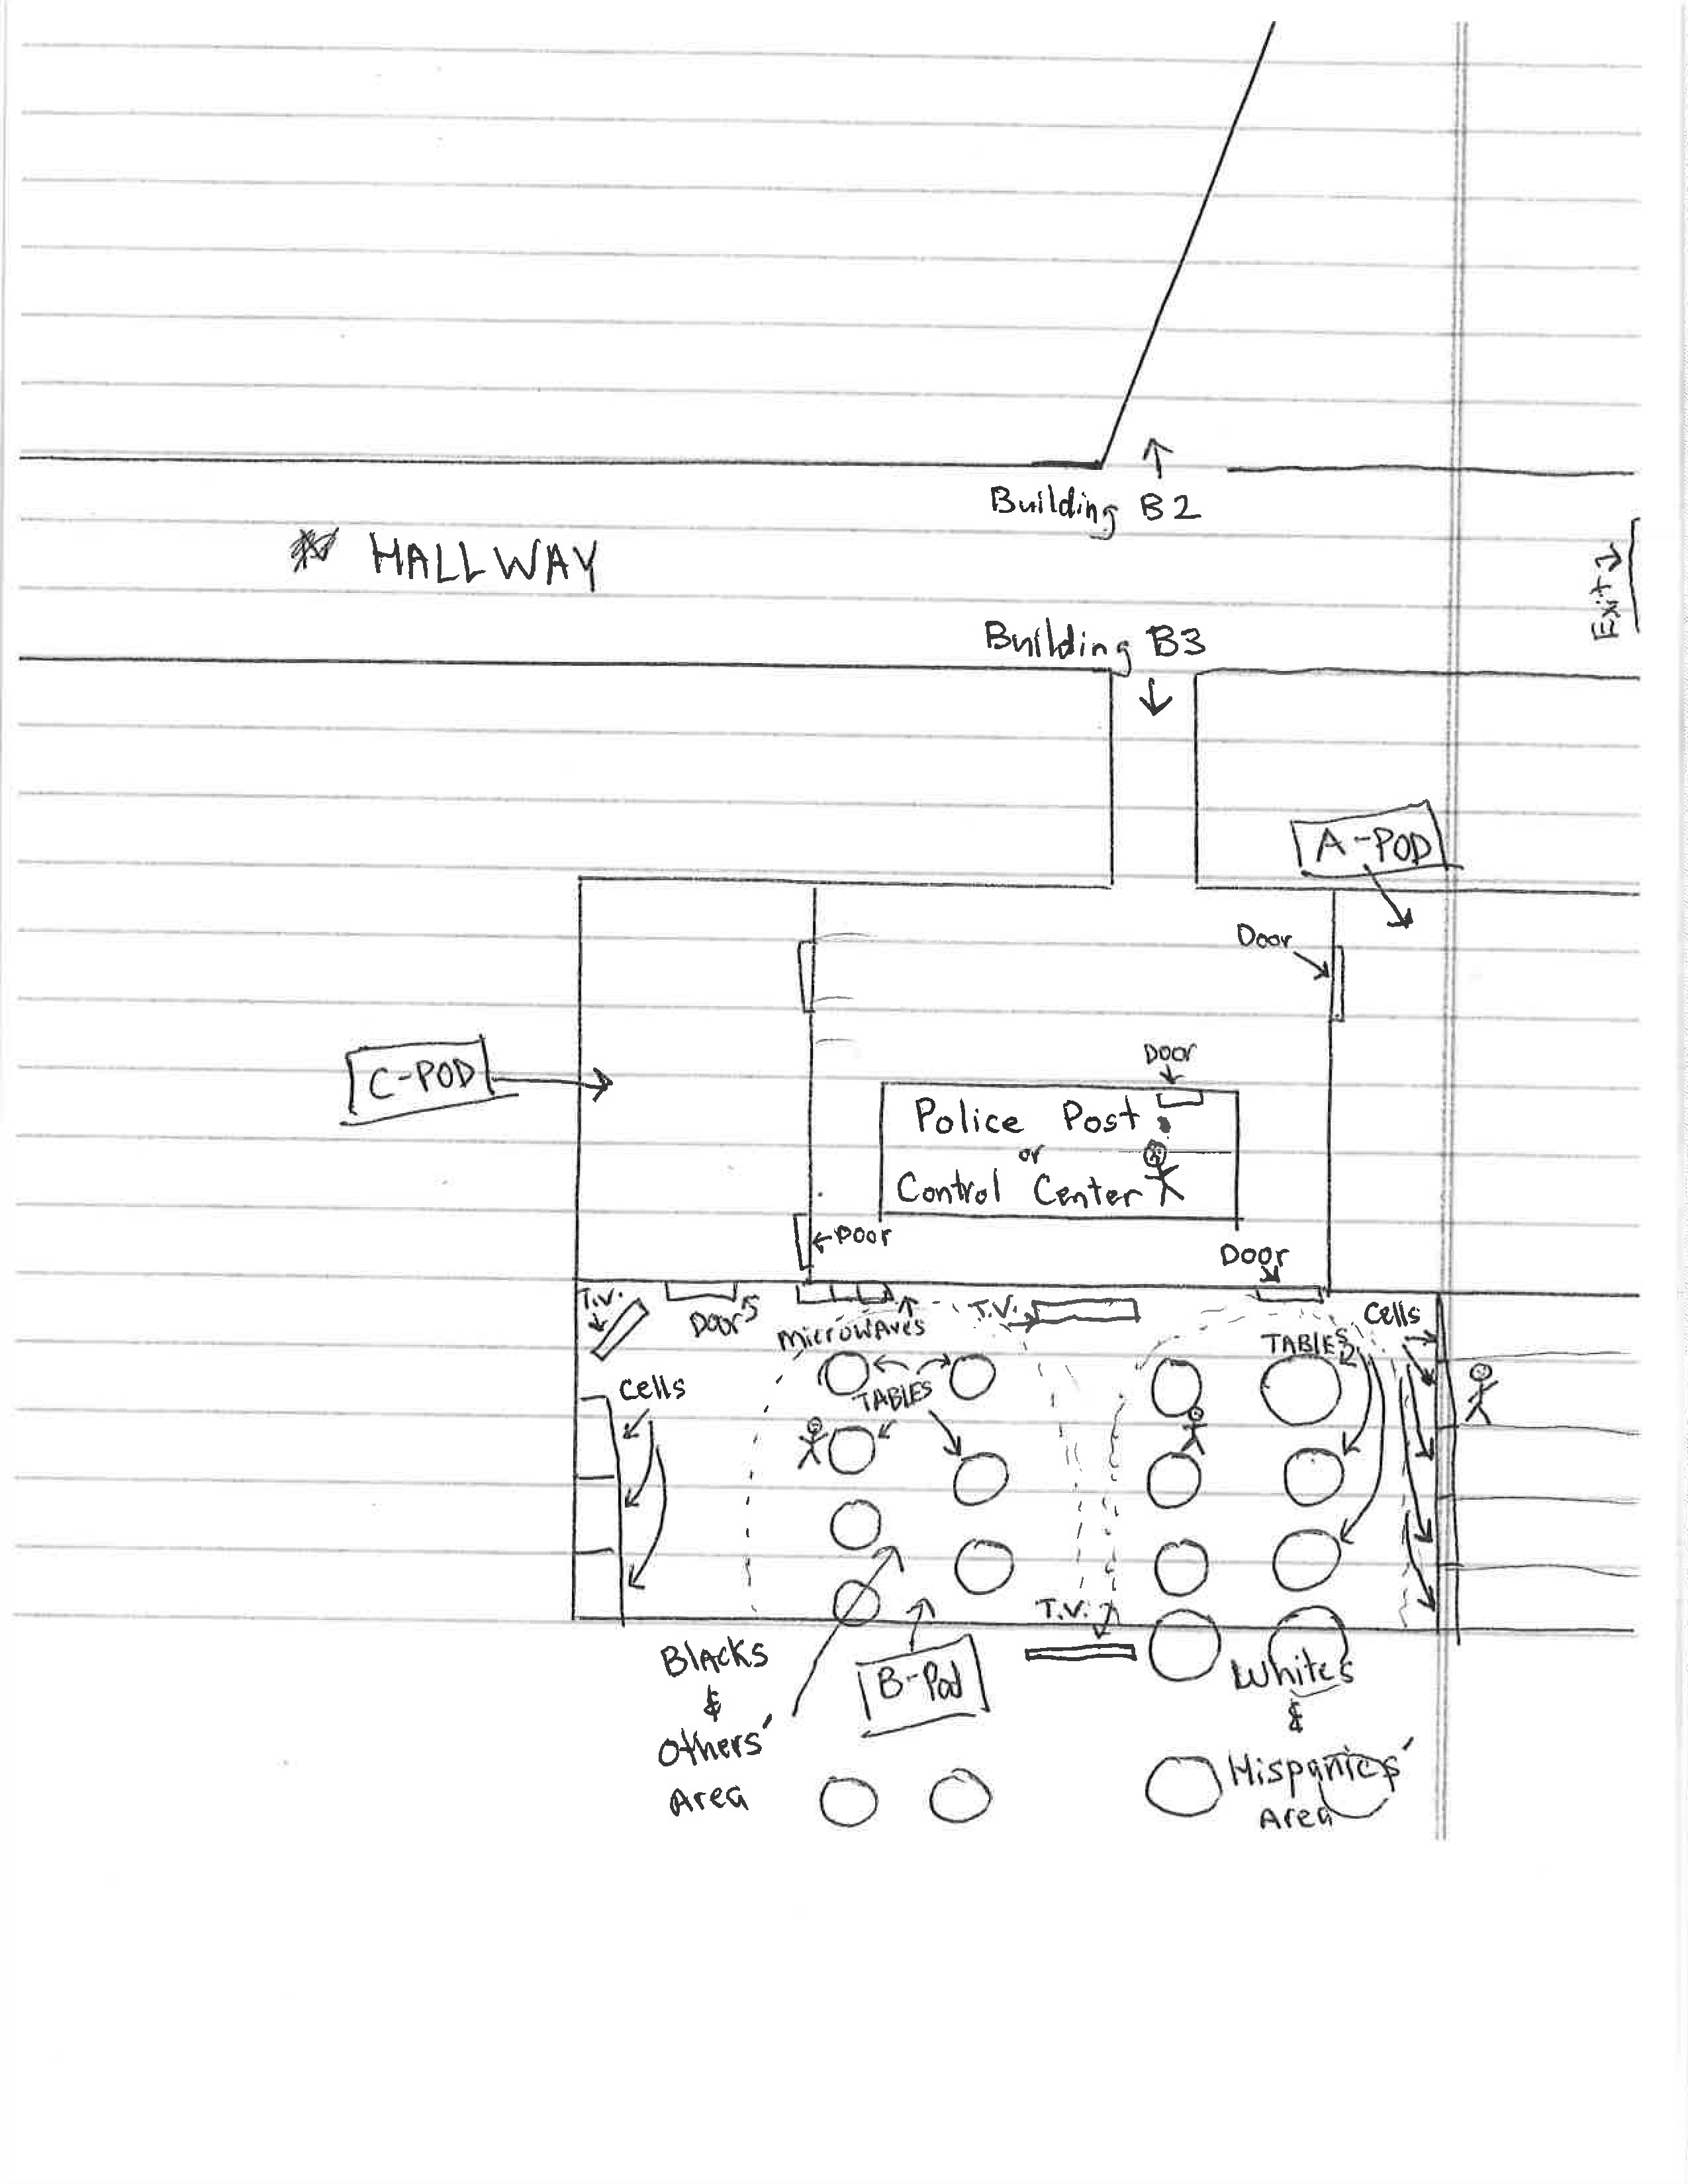 Building B2
HALLWAY
Exit
Building B3
A-POD
Door
C-POD
Door
Police Post
or
Control Center
Door
Door
T.V.
Door
Microwaves
T.V.
Cells
TABLES
Cells
TABLES
T.V.
Blacks
&
Others'
Area
B-Pod
Whites
&
Hispanics'
Area